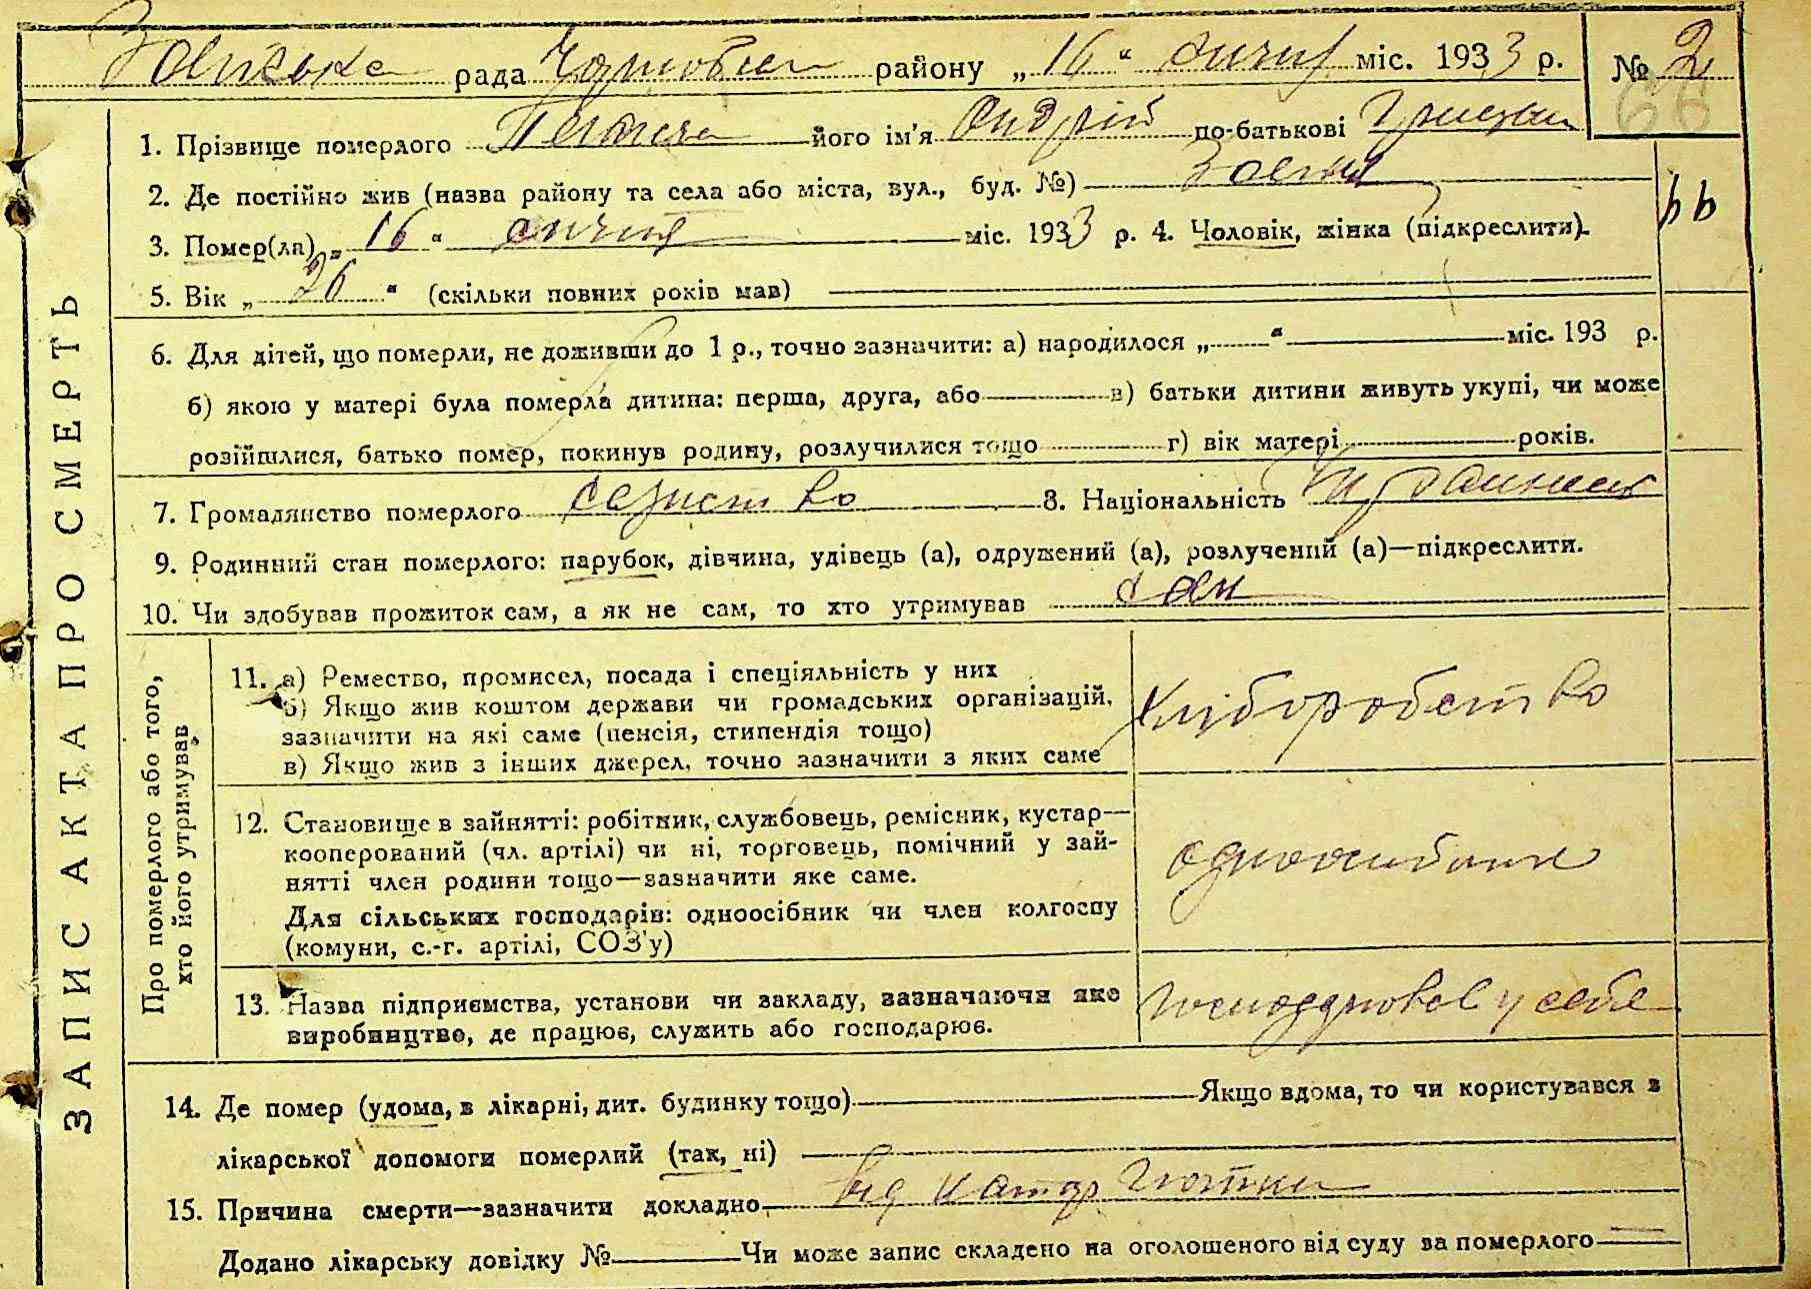 рада Чорнобил району „16“ січня міс. 1933 р. № 2
66
1. Прізвище померлого його ім'я Андрій по-батькові
2. Де постійно жив (назва району та села або міста, вул., буд. №)
3. Помер(ла) „16“ січня міс. 1933 р. 4. Чоловік, жінка (підкреслити).
5. Вік „26“ (скільки повних років мав)
6. Для дітей, що померли, не доживши до 1 р., точно зазначити: а) народилося „ “ міс. 193 р.
б) якою у матері була померла дитина: перша, друга, або в) батьки дитини живуть укупі, чи може
розійшлися, батько помер, покинув родину, розлучилися тощо г) вік матері років.
7. Громадянство померлого 8. Національність
9. Родинний стан померлого: парубок, дівчина, удівець (а), одружений (а), розлучений (а)—підкреслити.
10. Чи здобував прожиток сам, а як не сам, то хто утримував сам
ЗАПИС АКТА ПРО СМЕРТЬ
Про померлого або того,
хто його утримував
11. а) Ремество, промисел, посада і спеціяльність у них
б) Якщо жив коштом держави чи громадських організацій,
зазначити на які саме (пенсія, стипендія тощо)
в) Якщо жив з інших джерел, точно зазначити з яких саме
хліборобство
12. Становище в зайнятті: робітник, службовець, ремісник, кустар—
кооперований (чл. артілі) чи ні, торговець, помічний у зай-
нятті член родини тощо—зазначити яке саме.
Для сільських господарів: одноосібник чи член колгоспу
(комуни, с.-г. артілі, СОЗ'у)
одноосібник
13. Назва підприємства, установи чи закладу, зазначаючи яке
виробництво, де працює, служить або господарює.
господарював у себе
14. Де помер (удома, в лікарні, дит. будинку тощо) Якщо вдома, то чи користувався з
лікарської допомоги померлий (так, ні)
15. Причина смерти—зазначити докладно від катар
Додано лікарську довідку № Чи може запис складено на оголошеного від суду за померлого